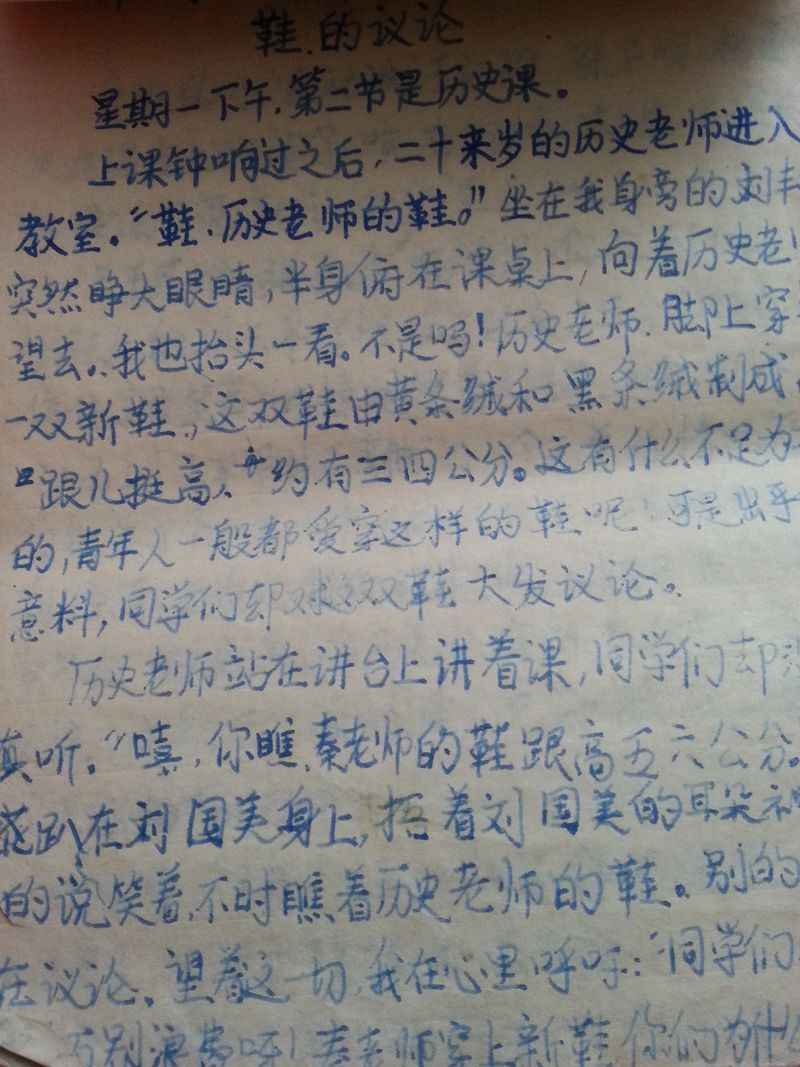 鞋的议论
星期一下午.第二节是历史课。
上课钟响过之后,二十来岁的历史老师进入
教室。“鞋.历史老师的鞋。”坐在我身旁的刘丰
突然睁大眼睛,半身俯在课桌上,向着历史老
望去。我也抬头一看。不是吗!历史老师.脚上穿
一双新鞋,这双鞋由黄条绒和黑条绒制成
跟儿挺高、约有三四公分。这有什么不足为
的,青年人一般都爱穿这样的鞋呢!可是出乎
意料,同学们却对这双鞋大发议论。
历史老师站在讲台上讲着课,同学们却
真听。“嘻,你瞧.秦老师的鞋跟高五六公分。
趴在刘国美身上,捂着刘国美的耳朵
的说笑着,不时瞧着历史老师的鞋。别的
在议论。望着这一切,我在心里呼吁:“同学们
别浪费呀!秦老师穿上新鞋你们为什么